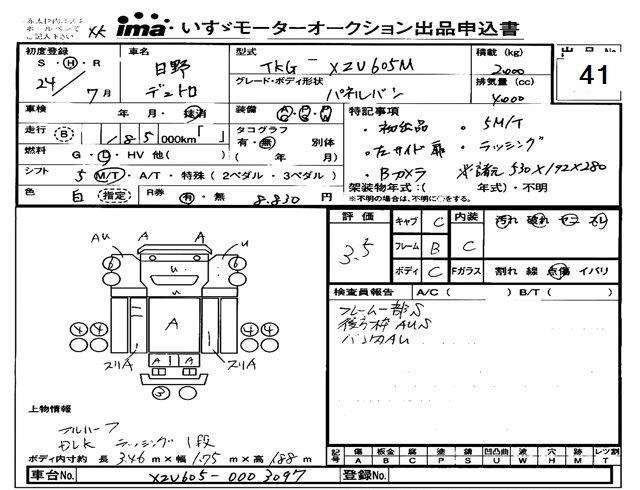 ima いすゞモーターオークション出品申込書
初度登録 S・H・R 24 / 7月
車名 日野 デュトロ
型式 TKG - XZU605M
グレード・ボディ形状 パネルバン
積載 (kg) 2,000
排気量 (cc) 4,000
出品No. 41
車検 年・月・抹消
装備 A/C P/S P/W
走行 B 185 000km 「 」
タコグラフ 有・無 別体 ( 年 月)
燃料 G・D・HV 他( )
シフト 5 M/T・A/T・特殊 (2ペダル・3ペダル)
色 白 指定 R券 有・無 8,830 円
特記事項
・初出品 ・5M/T
・左サイド扉 ・ラッシング
・Bカメラ ※諸元 530×192×280
架装物年式:( 年式)・不明
※不明の場合は、不明に○をする。
評価 3.5
キャブ C 内装 C 汚れ 破れ ヤニ スレ
フレーム B
ボディ C Fガラス 割れ 線 点傷 イバリ
検査員報告 A/C ( ) B/T ( )
フレーム一部S
後方枠AUS
バンパAU
AU A A U
6 U 6
U
4 4 A 4 4
スリA A A スリA
3
上物情報
フルハーフ
DLK ラッシング1段
ボディ内寸約 長 3.46 m × 幅 1.75 m × 高 1.88 m
記号 傷 A 板金 B 腐 C 塗 P 錆 S 凹凸曲 U 波 W 穴 H 跡 M レツ割 T
車台No. XZU605-0003097 登録No.